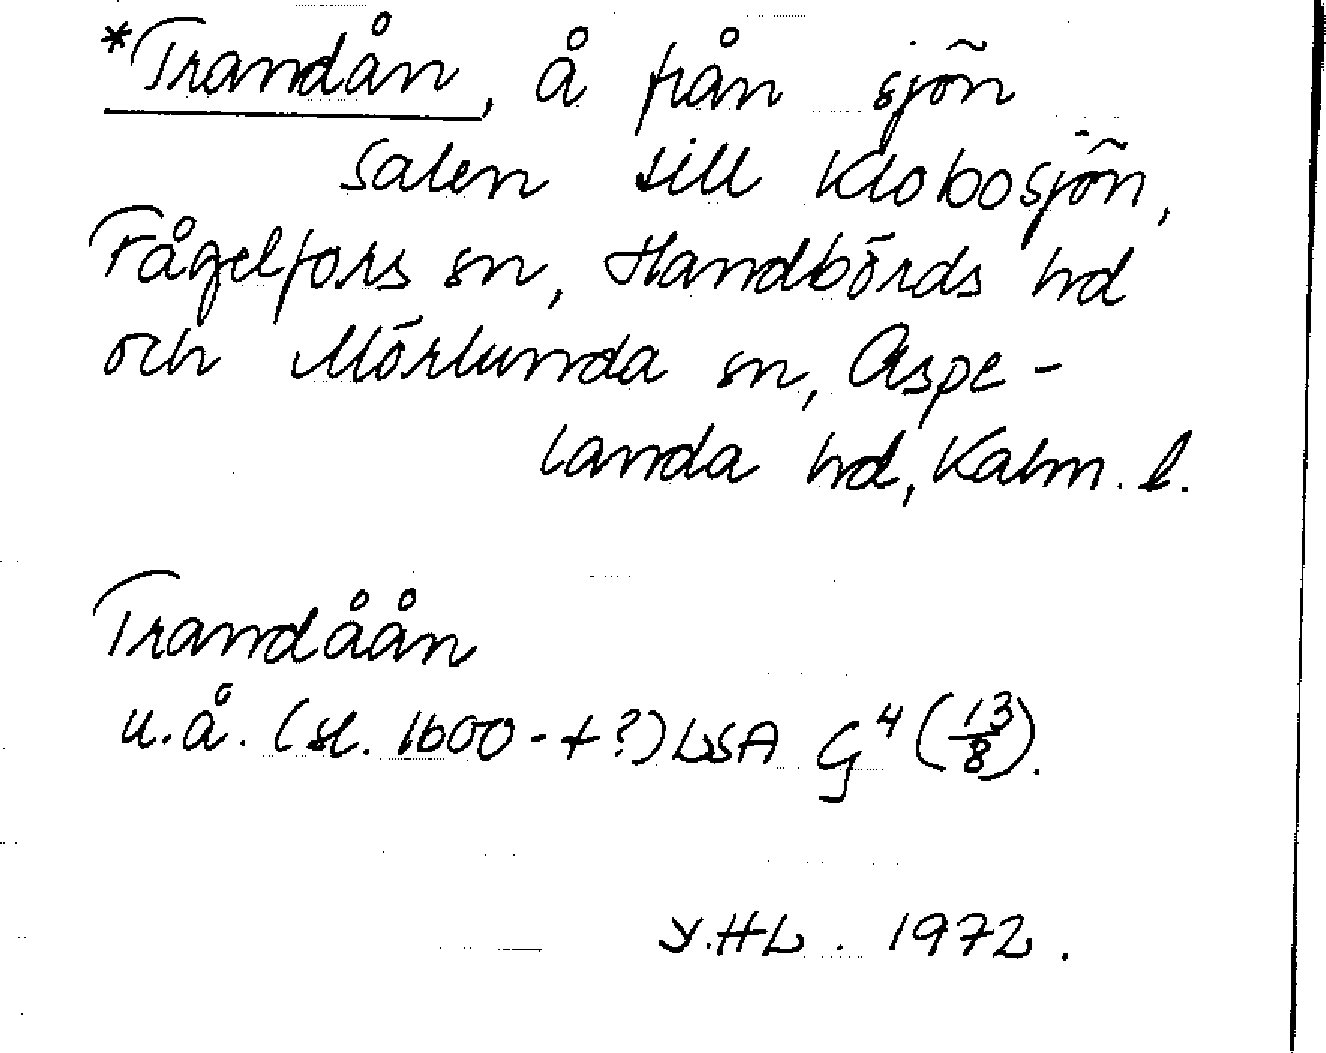 *Trandån, å från sjön
Salen till Klobosjön,
Fågelfors sn, Handbörds hd
och Mörlunda sn, Aspe-
landa hd, Kalm. l.
Trandåån
u.å. (sl. 1600-t?) LSA G⁴ (13/8).
Y.HL. 1972.